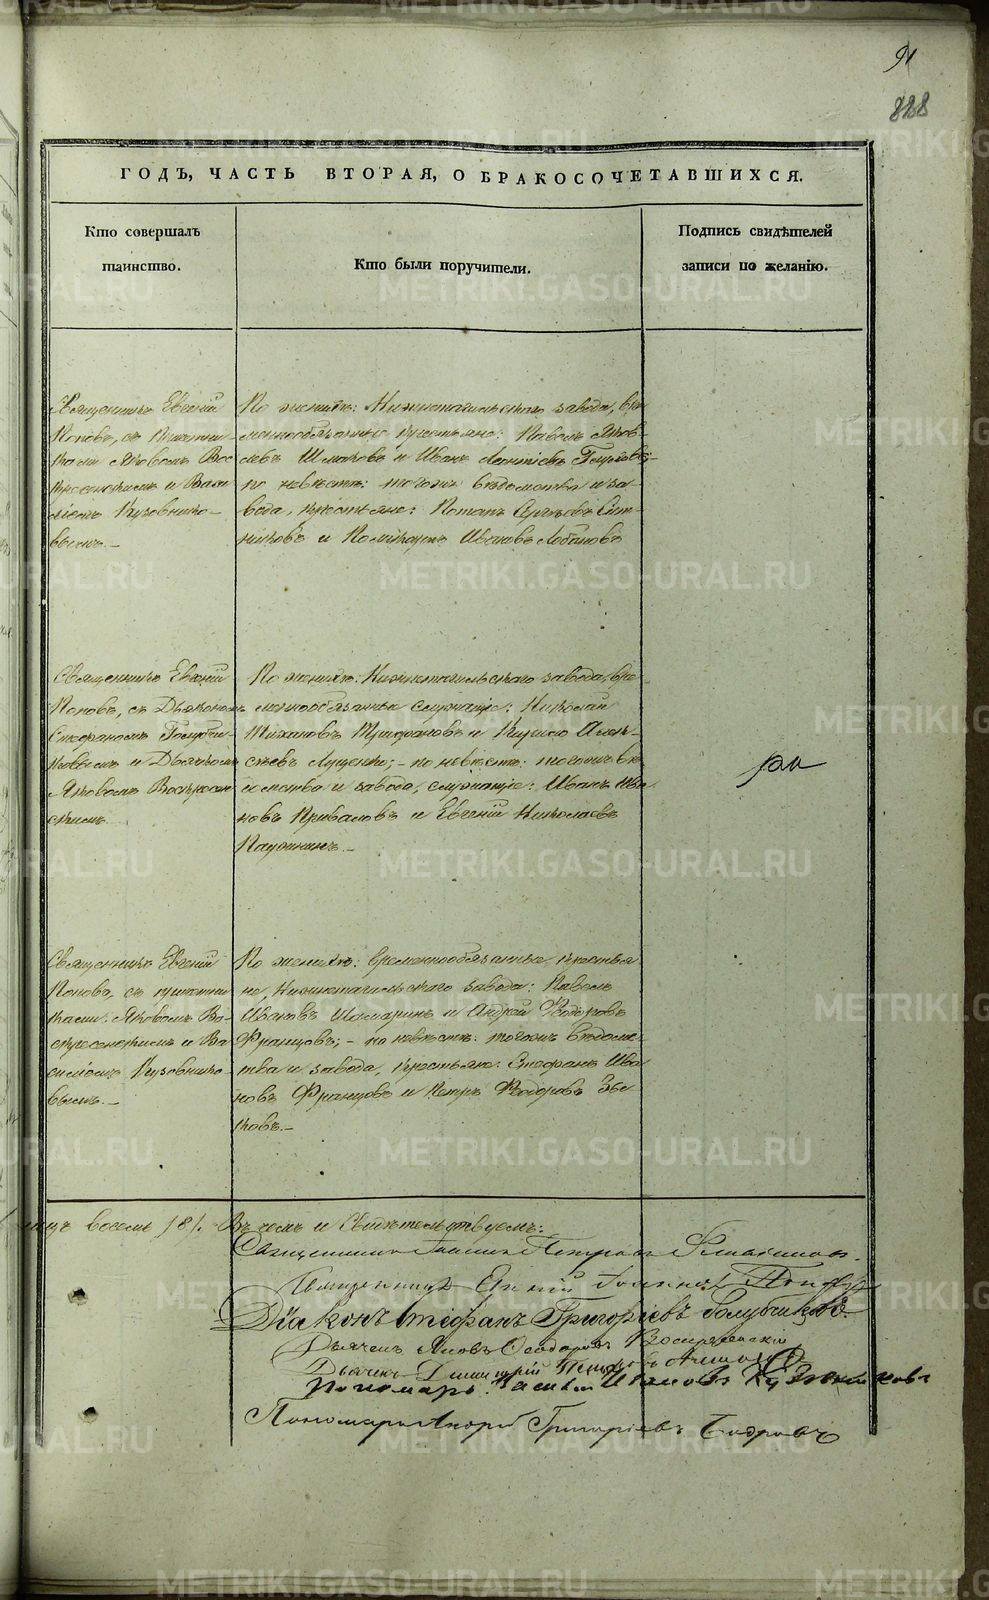 91
888
ГОДЪ, ЧАСТЬ ВТОРАЯ, О БРАКОСОЧЕТАВШИХСЯ.
Кто совершалъ
таинство.
Кто были поручители.
Подпись свидѣтелей
записи по желанію.
Священникъ Евгеній
Поповъ, съ Причетни-
ками Яковомъ Вос
кресенскимъ и Васи
ліемъ Кузовнико-
вымъ.-
По женихѣ: Нижнетагильскаго завода, вре
меннообязанные крестьяне: Павелъ Яков-
левъ и Иванъ Леонтіевъ
по невѣстѣ: тогожъ вѣдомства и за-
вода, крестьяне: Потапъ Сергѣевъ Сит-
никовъ и Ивановъ Лобановъ
Священникъ Евгеній
Поповъ, съ Діакономъ
Стефаномъ Голубчи-
ковымъ и Дьячкомъ
Яковомъ Воскресен
скимъ.
По женихѣ: Нижнетагильскаго завода, вре-
меннообязанные служащіе: Николай
Тихановъ и Алек-
сѣевъ Луценко; - по невѣстѣ: тогожъ вѣ
домства и завода, служащіе: Иванъ Ива-
новъ Приваловъ и Евгеній Николаевъ
Священникъ Евгеній
Поповъ, съ причетни
ками: Яковомъ Во-
скресенскимъ и Ва
силіемъ Кузовнико-
вымъ.-
По женихѣ: Временнообязанные крестья
не, Нижнетагильскаго завода: Павелъ
Ивановъ и Андрей Ѳедоровъ
Францовъ; - по невѣстѣ: тогожъ вѣдомс-
тва и завода, крестьяне: Стефанъ Ива
новъ Францовъ и Петръ Ѳедоровъ Зы
ковъ.-
восемь /8/. Въ чемъ и Свидѣтельствуемъ:
Священникъ Іоаннъ Петровъ
Священникъ Евгеній Іоанновъ Поповъ
Діаконъ Стефанъ Григоріевъ Голубчиковъ.
Дьячекъ Яковъ Ѳеодоровъ Воскресенскій
Дьячекъ Димитрій
Пономарь Василій Ивановъ Кузовниковъ
Пономарь Андрей Григоріевъ
METRIKI.GASO-URAL.RU